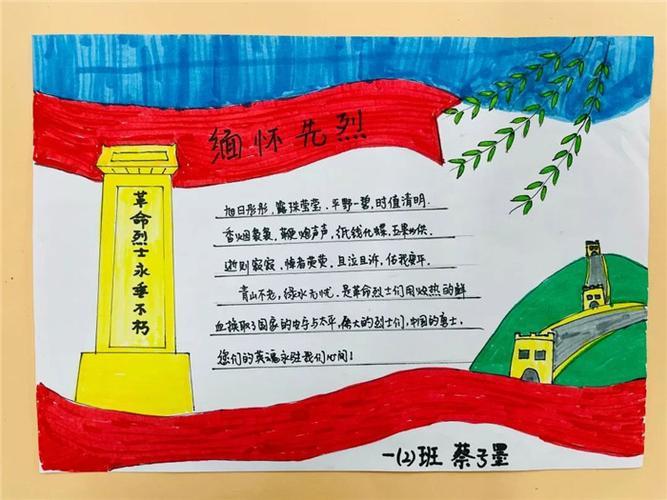 缅怀先烈
革命烈士永垂不朽
旭日彤彤，露珠莹莹，平野一碧，时值清明。
香烟袅袅，鞭炮声声，纸钱化蝶，五果以供。
逝则寂寂，悼者茕茕，且泣且诉，佑我康平。
青山不老，绿水无忧，是革命烈士们用灼热的鲜
血换取了国家的安宁与太平，伟大的烈士们，中国的勇士，
您们的英魂永驻我们心间！
一(2)班 蔡子墨